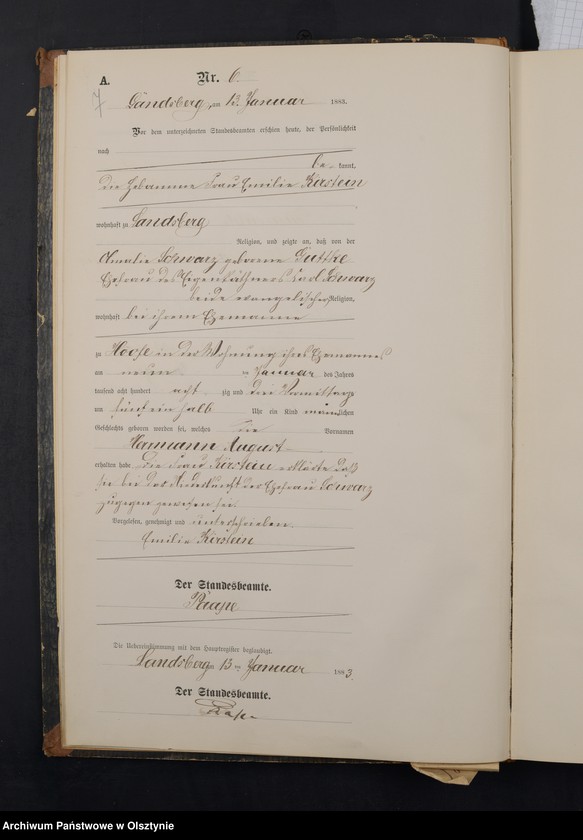 A.
Nr. 6.
7
Landsberg, am 13. Januar 1883.
Vor dem unterzeichneten Standesbeamten erschien heute, der Persönlichkeit
nach
be kannt,
die Hebamme Frau Emilie Kirstein
wohnhaft zu Landsberg
Religion, und zeigte an, daß von der
Amalie Schwarz geborene Guttke
Ehefrau des Eigenkäthners Karl Schwarz
beide evangelischer Religion,
wohnhaft bei ihrem Ehemanne
zu Hoofe in der Wohnung ihres Ehemannes
am neun ten Januar des Jahres
tausend acht hundert acht zig und drei Vormittags
um fünf ein halb Uhr ein Kind männlichen
Geschlechts geboren worden sei, welches die Vornamen
Hermann August
erhalten habe. Die Frau Kirstein erklärte daß
sie bei der Niederkunft der Ehefrau Schwarz
zugegen gewesen sei.
Vorgelesen, genehmigt und unterschrieben.
Emilie Kirstein
Der Standesbeamte.
Die Uebereinstimmung mit dem Hauptregister beglaubigt.
Landsberg am 13 ten Januar 1883.
Der Standesbeamte.
Archiwum Państwowe w Olsztynie